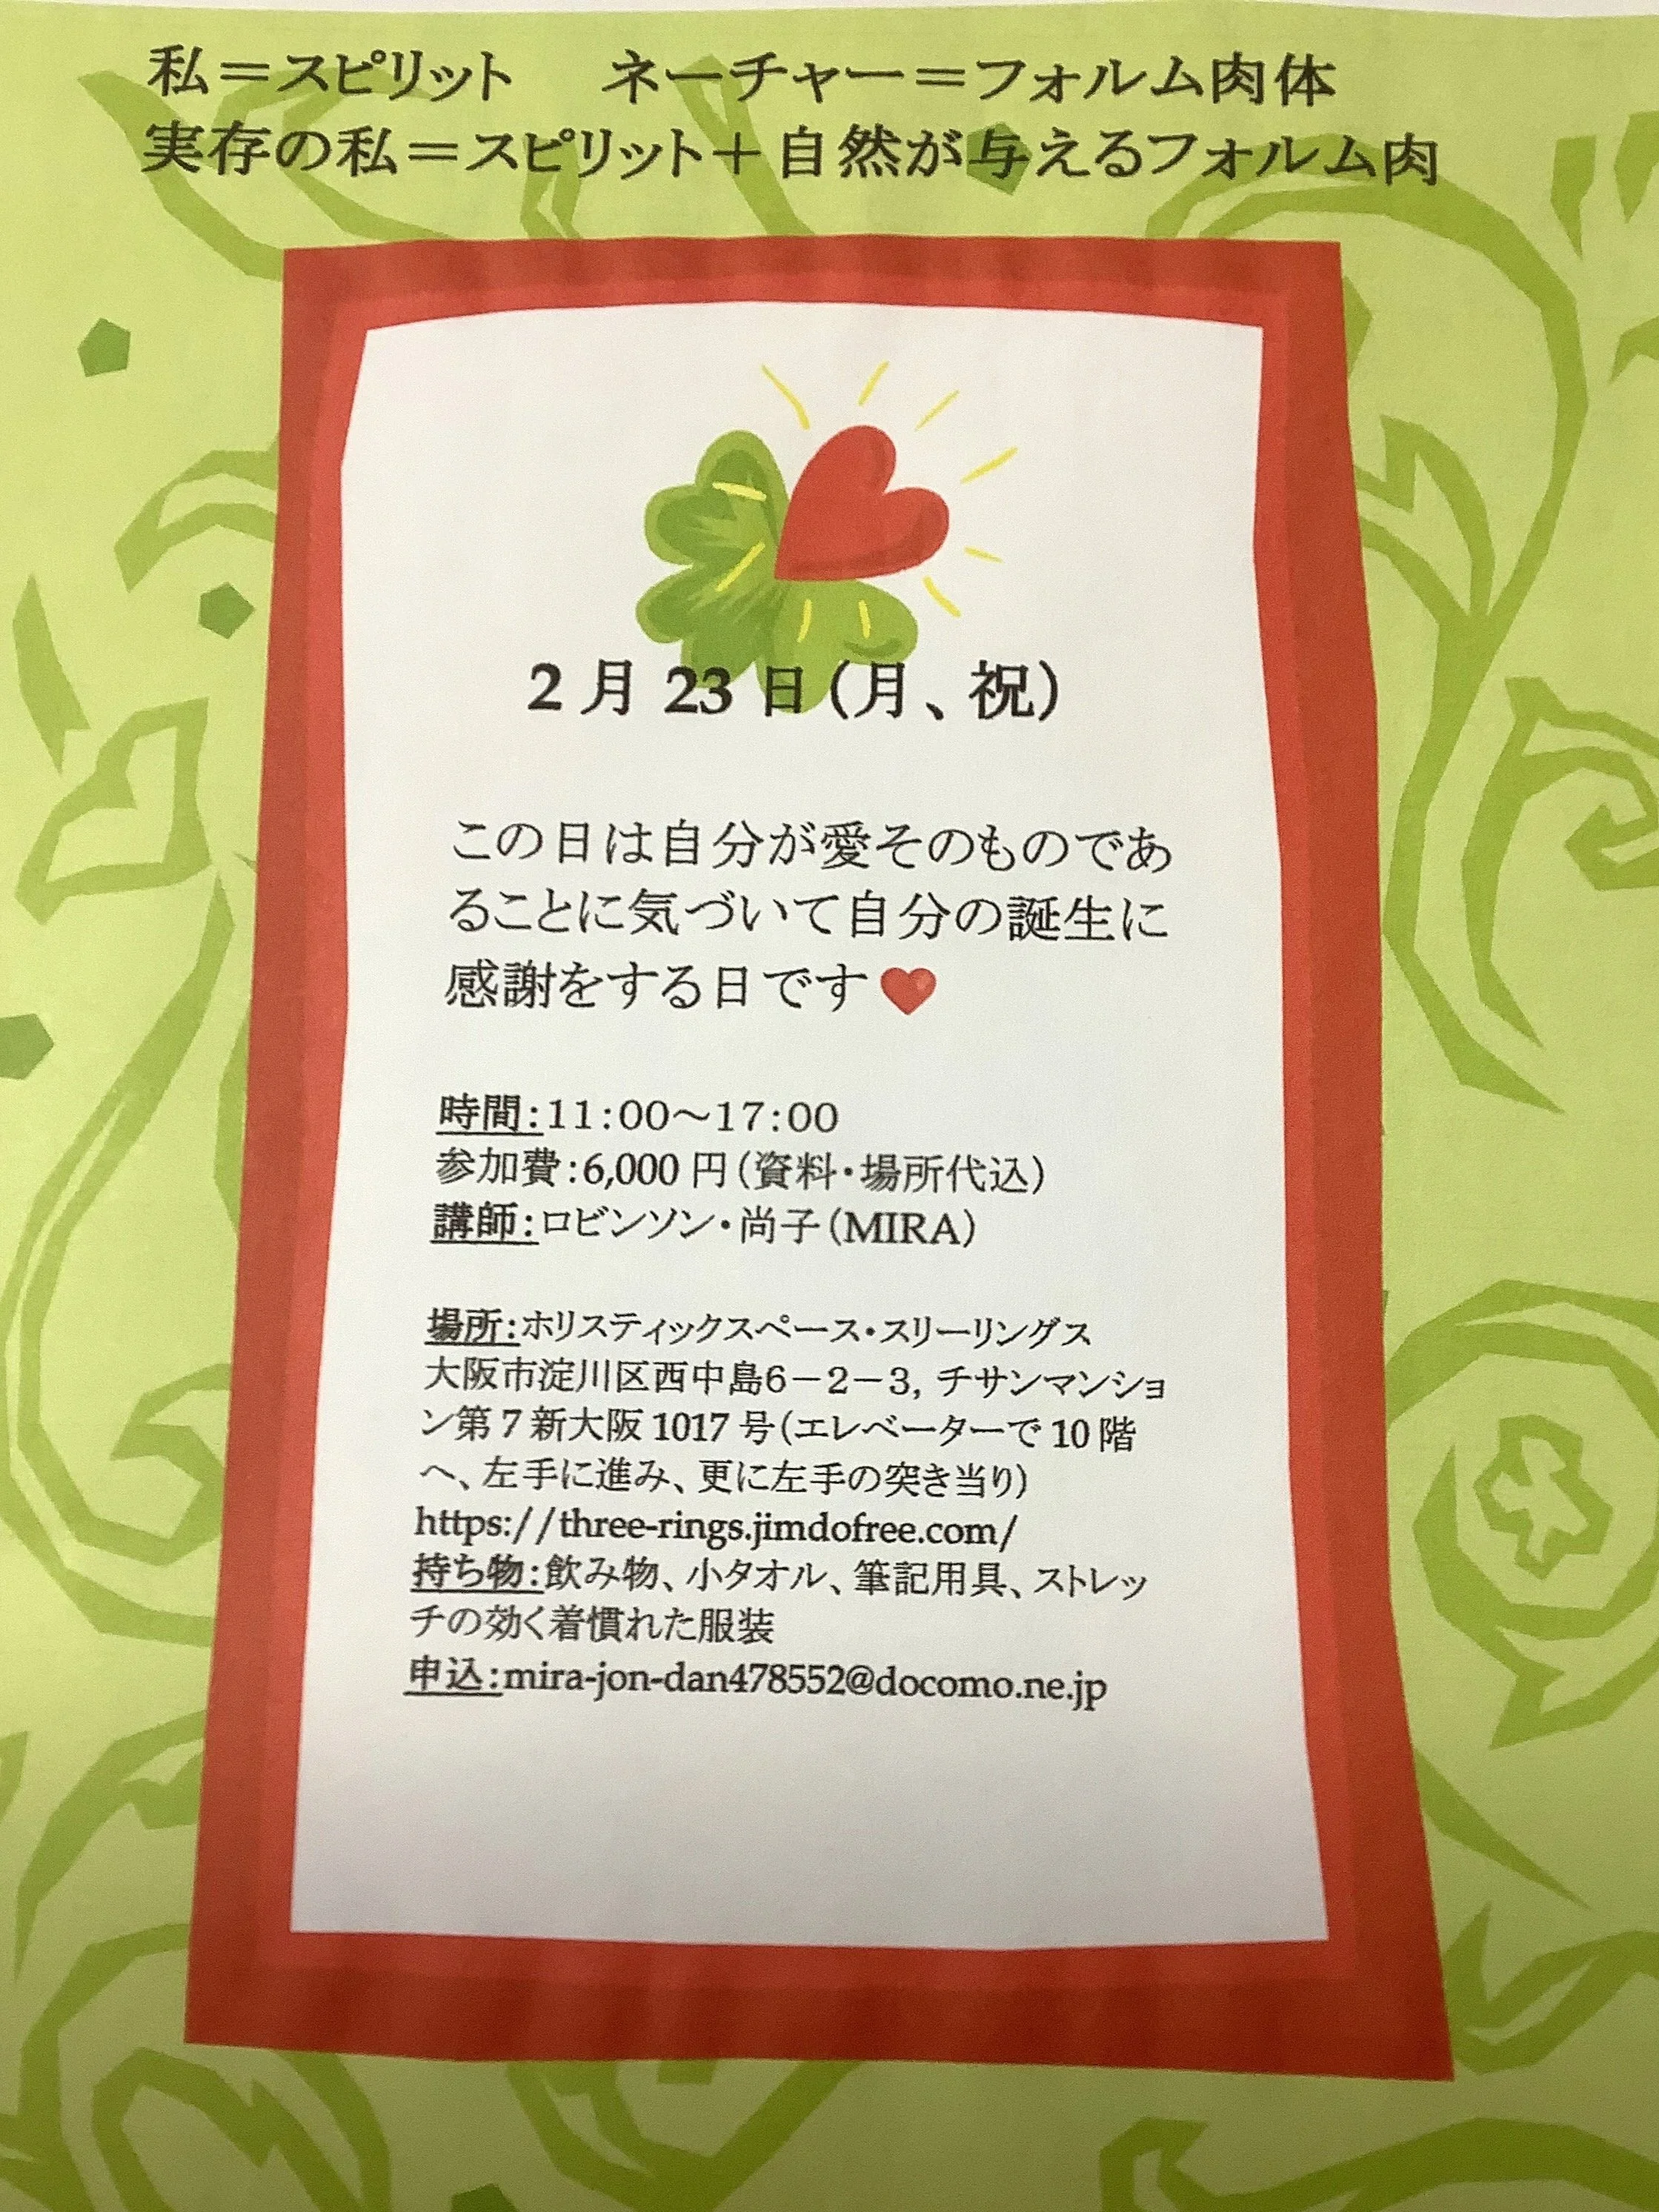 私＝スピリット　ネーチャー＝フォルム肉体
実存の私＝スピリット＋自然が与えるフォルム肉
2月23日（月、祝）
この日は自分が愛そのものであ
ることに気づいて自分の誕生に
感謝をする日です❤
時間：11：00～17：00
参加費：6,000円（資料・場所代込）
講師：ロビンソン・尚子（MIRA）
場所：ホリスティックスペース・スリーリングス
大阪市淀川区西中島6－2－3, チサンマンショ
ン第7新大阪1017号（エレベーターで10階
へ、左手に進み、更に左手の突き当り）
https://three-rings.jimdofree.com/
持ち物：飲み物、小タオル、筆記用具、ストレッ
チの効く着慣れた服装
申込：mira-jon-dan478552@docomo.ne.jp